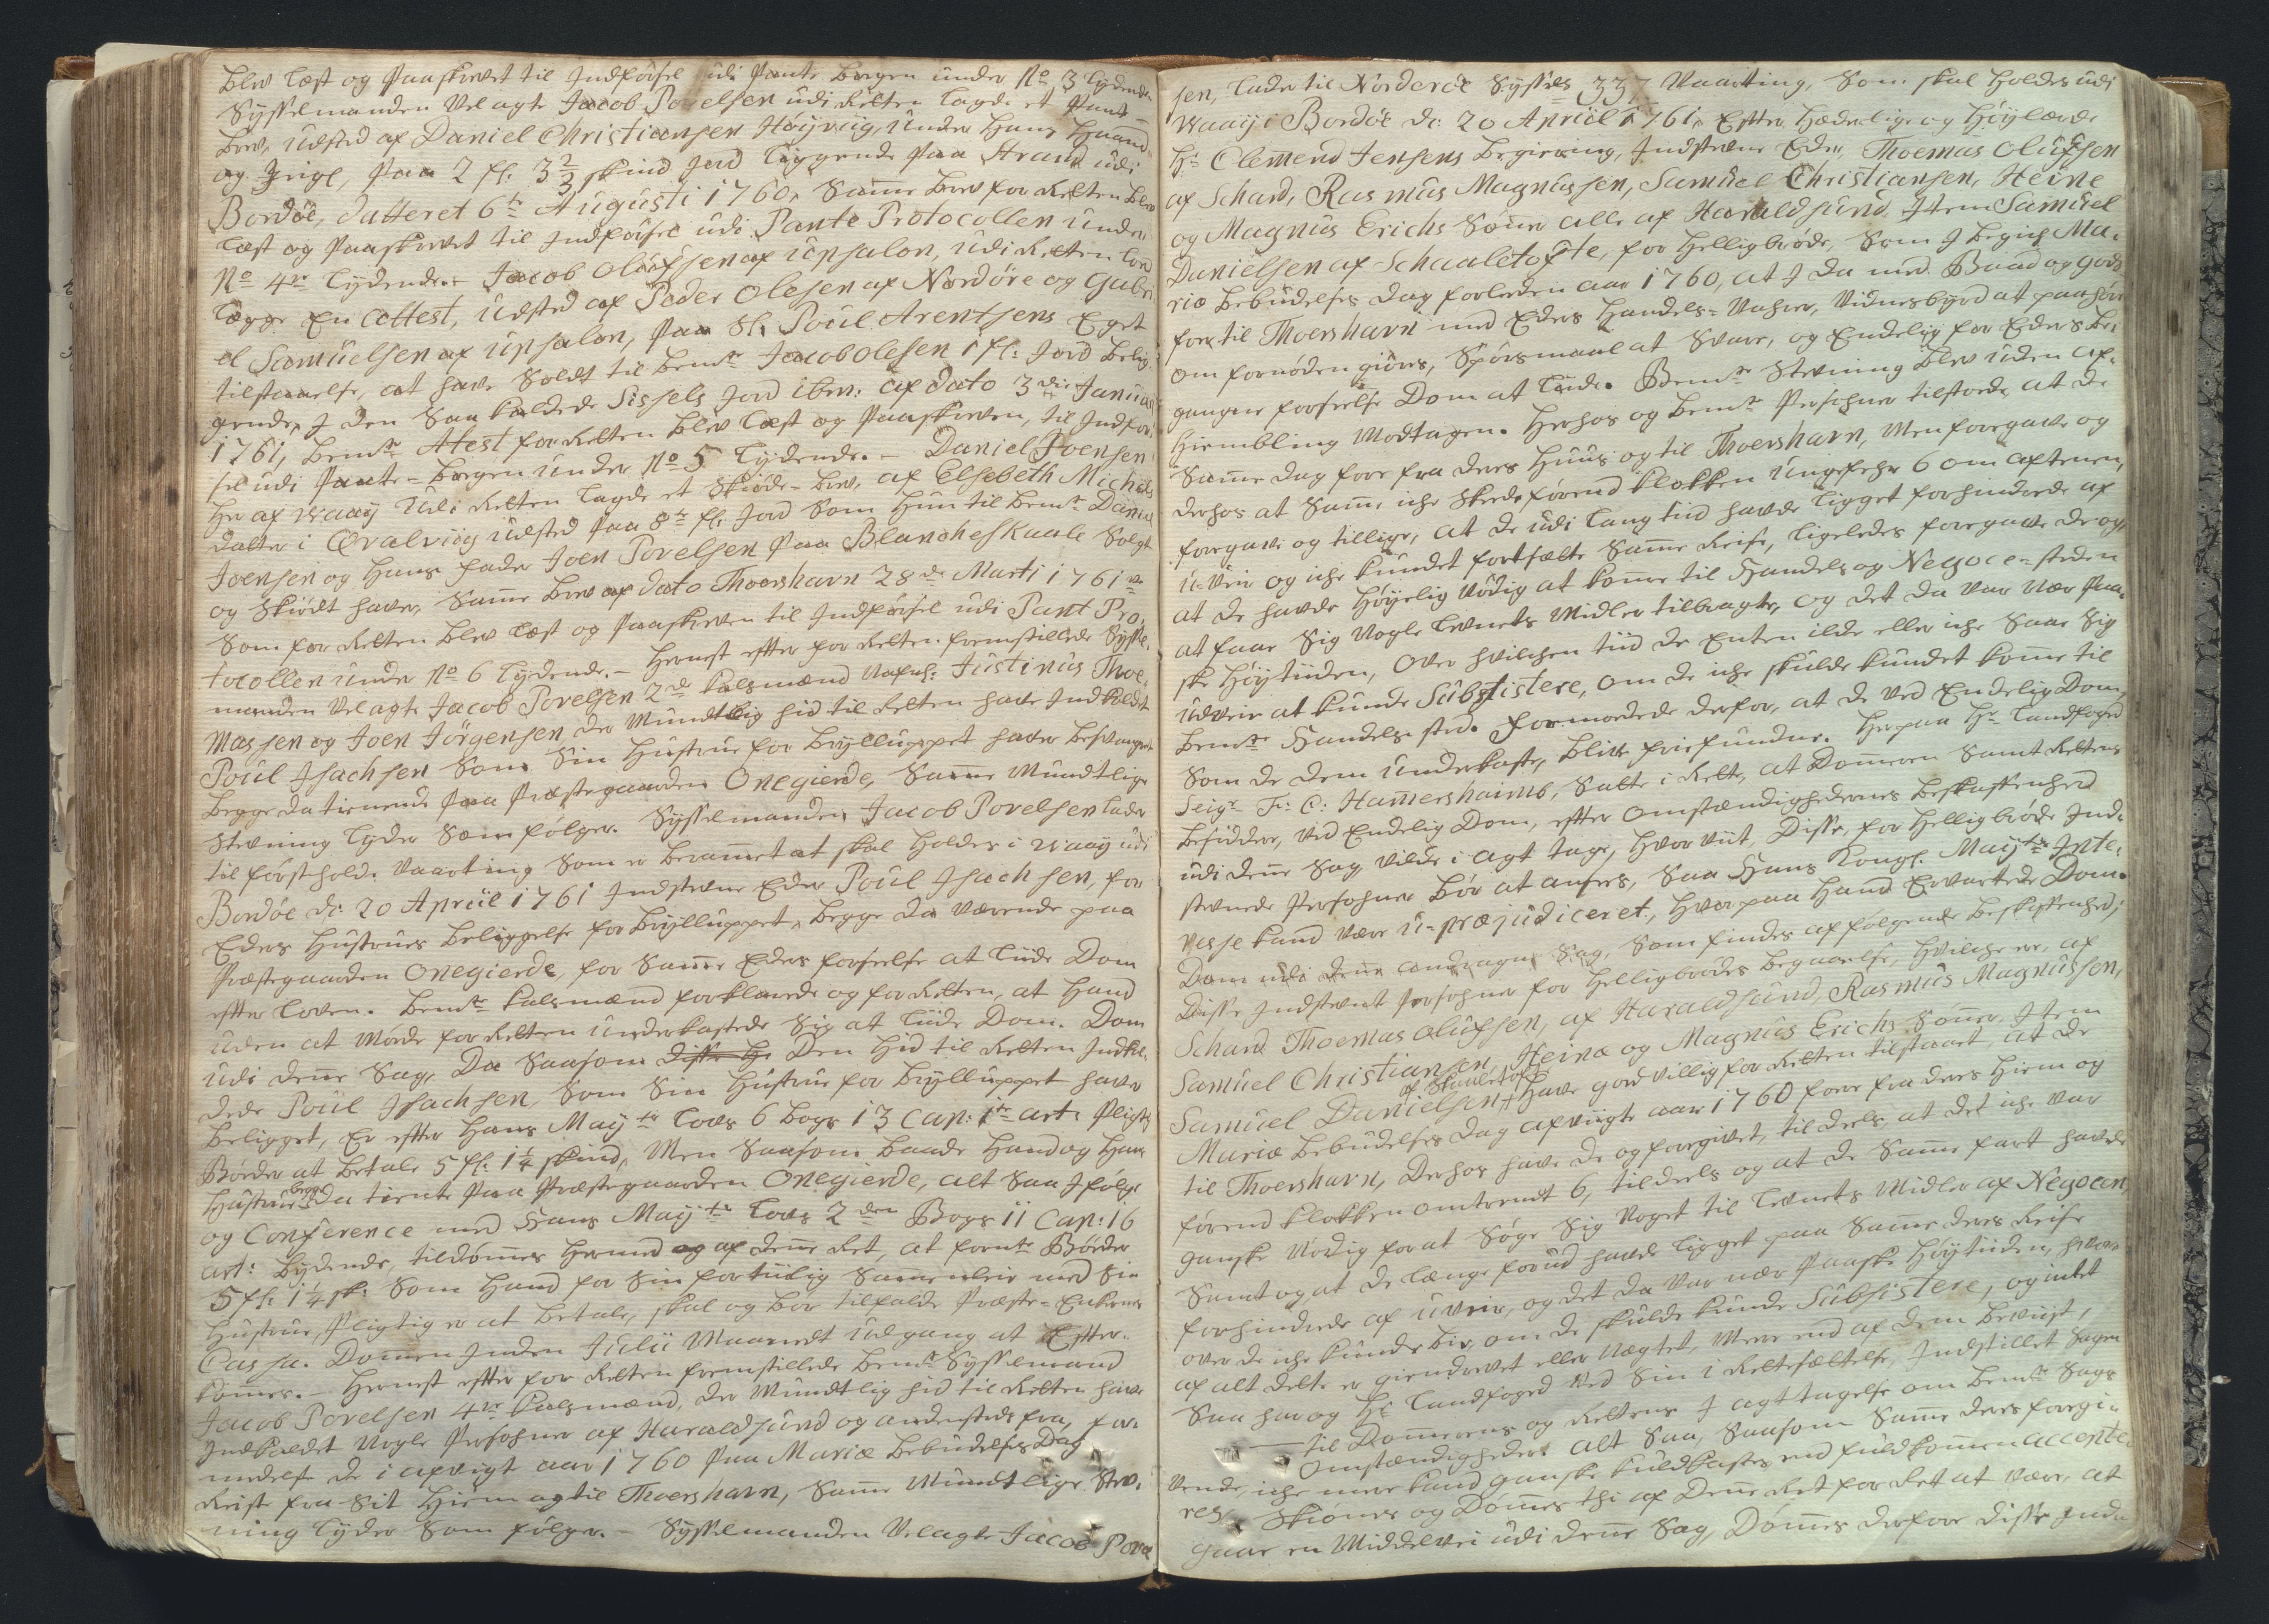 blev læst og Paaskrevet til Indførsel udi Pante bogen under No 3 lydende
Sysselmanden Velagte Jacob Povelsen udi Retten lagde et Pant-
brev, udsted af Daniel Christiansen Høyviig, under hans Haand
og Zeigl, Paa 2 fl: 3 2/3 skind Jord liggende Paa Strand udi
Bordöe, datteret 6te Augusti 1760, Samme brev for Retten blev
læst og Paaskrevet til Indførsel udi Pante Protocollen under
No 4re lydende. - Jacob Olüfsen af Upsalon, udi Retten lod
lægge En Attest, udsted af Peder Olesen af Nordöre og Gabri
el Samüelsen af Upsalon, Paa Sl. Poül Arentsens Eget
tilstaaelse, at have Soldt til bemte Jacob Olesen 1 fl: Jord belig-
gende, I den Saa kaldede Sissels Jord ibm: af dato 3die Januar
1761, bemte Atest for Retten blev læst og Paaskreven, til Indför-
sel udi Pante-bogen under No 5 lydende. - Daniel Joensen
her af Waaÿ udi Retten lagde et Skiöde-brev, af Elsebeth Michels
datter i Qvalviig udsted paa 8te fl: Jord Som hun til bemte Daniel
Joensen og hans fader Joen Povelsen Paa Blancheskaale Solgt
og Skiödt haver, Samme brev af dato Thorshavn 28de Marti 1761
Som for Retten blev læst og Paaskreven til Indförsel udi Pant Pro-
tocollen under No 6 lydende. - Hernest efter for Retten fremstillede Syssel-
manden Velagte Jacob Povelsen 2de kalsmænd Nafnl: Justinus Thoe-
massen og Joen Jörgensen, der Mundtlig hid til Retten have Indkaldet
Poül Isachsen Som Sin Hustrue for bryllupet haver besvangret
begge da tienende Paa Præstegaarden Onegierde, Samme Mundtlige
Stevning lyder Som fölger. Sysselmanden Jacob Povelsen lader
til förstholde Vaarting Som er berammet at skal holdes i Waaÿ udi
Bordöe d: 20 Apriil 1761 Indstevne Eder Poül Isachsen, for
Eders Hustrues beliggelse for bryllupet, begge da værende paa
Præstegaarden Onegierde, for Samme Eders forseelse at liide Dom
efter Loven. bemte kalsmænd forklarede og for Retten, at hand
uden at Möde for Retten underkastede Sig at liide Dom. Dom
udi denne Sag, da Saasom den hid til Retten Indkal-
dede Poül Isachsen, Som Sin Hustrue for bryllupet haver
beligget, Er efter Hans Mayts Lovs 6 bogs 13 Cap: 1te art: Pligtig
Böeder at betale 5 fl: 1 1/4 skind, Men Saasom baade hand og hans
Hustrue begge da tiente Paa Præstegaarden Onegierde, alt Saa I fölge
og Conference med Hans Mayts Lovs 2den Bogs 11 Cap: 16
art: bydende, tildömmes hermed af denne Ret, at fornte Böeder
5 fl: 1 1/4 sk: Som hand for Sin fortiilig Sammenleie med Sin
Hustrue, Pligtig er at betale, skal og bör tilfalde Præste-Enkernes
Cassa. Dommen Inden Julii Maanedt udgang at Efter-
kommes. - Hernest efter for Retten fremstillede bemte Sysselmand
Jacob Povelsen 4re kalsmænd, der Mundtlig hid til Retten have
Indkaldet Nogle Persohner af Haraldsund og anderstedsfra, for-
medelst de i afvigt aar 1760 Paa Mariæ bebudelses Dag
Reiste fra Sit Hiem og til Thorshavn, Samme Mundtlige Stev-
ning lyder Som fölger. - Sysselmanden Velagte Jacob Povel
sen, lader til Norderöe Syssels 337 Vaarting, Som skal holdes udi
Waaÿ i Bordöe d: 20 Apriil 1761, Efter Hæderlige og Höylærde
Hr Clemend Jensens begiering, Indstevne Eder, Thoemas Olüfsen
af Schard, Rasmus Magnussen, Samüel Christiansen, Heine
og Magnus Erichs Sönner alle af Haraldsund, Item Samüel
Danielsen af Schaaletofte, for Helligbröde, Som I begich Ma-
riæ bebudelses Dag forleden aar 1760, at I da med Baad og Gods
fore til Thoershavn med Eders Handels-Vahrer, Vidnesbyrd at paahöre
om fornöden giöres, Spörsmaal at Svare, og Endelig for Eders be-
gangne forseelse Dom at liide. Bemte Stevning blev uden af-
hiembling Modtagen. herhos og bemte Persohner tilstode, at de
Samme dag foer fra deres Huus og til Thoershavn, Men foregave og
derhos at Samme iche Skeede förend klokken ungefehr 6 om aftenen,
foregave og tillige, at de udi lang tiid havde ligget forhindrede af
u-Veir og iche kundet fortsætte Samme Reise, ligeledes foregave de og
at de havde höyelig Nödig at komme til Handels og Negoce-steden
at faae Sig Nogle levnets Midler tilbragte, og det da var nær Paa-
ske Höytiiden, over hvilchen tiid de Enten ilde eller iche Saae Sig
udveie at kunde Subsistere, om de iche skulde kundet komme til
bemte Handels-sted. Formodede derfor, at de ved Endelig Dom,
Som de dem underkaste, blive friefundne. Herpaa Hr Landfoged
Seigr Fr: C: Hammershaimb, Satte i Rette, at Dommeren Samt Rettens
besiddere, ved Endelig Dom, efter Omstændighedernes beskaffenhed
udi denne Sag, vilde i agt tage, hvor viit, disse, for Helligbröde Ind-
stevnede Persohner bör at ansees, Saa Hans Kongl. Mayts Inte-
resse kand være u-præjudiceret, hvorpaa hand Ervartede Dom.
Dom udi denne andragne Sag, Som findes af fölgende beskaffenhed,
Disse Indstevnt Persohner for Helligbrödes begaaelse, hvilche ere, af
Schard Thoemas Olüfsen, af Haraldsund, Rasmus Magnussen,
Samüel Christiansen, Heine og Magnus Erichs Sönner, Item
Samüel Danielsen af Skaaletofte have godvillig for Retten tilstaaet, at de
Mariæ bebudelses Dag afvigte aar 1760 fore fra deres Hiem og
til Thoershavn, derhos have de og foregivet, til deels, at det iche var
förend klokken omtrendt 6, tildeels og at de Samme fart havde
ganske Nödig for at Söge Sig Noget til levnets Midler af Negocen,
Samt og at de længe forud havde ligget paa Samme deres Reise
forhindrede af uveir, og det da var nær Paaske Höytiiden, hvor-
over de iche kunde bie, om de skulde kunde Subsistere, og intet
af alt dette er giendrevet eller Nægtet, Mere end af dem beviist,
Saa har og Hr Landfoged ved Sin i Rettesættelse, Indstillet Sagen
til Dommerens og Rettens I agttagelse om bemte Sags
Omstændigheder. Alt Saa, Saasom Samme deres foregi-
vende, iche mere kand ganske kuldkastes end fuldkommen accepte-
res, Skiönnes og Dömmes thi af denne Ret for Ret at være, at
gaae en Middelvei udi denne Sag, Dömmes derfor disse Ind-